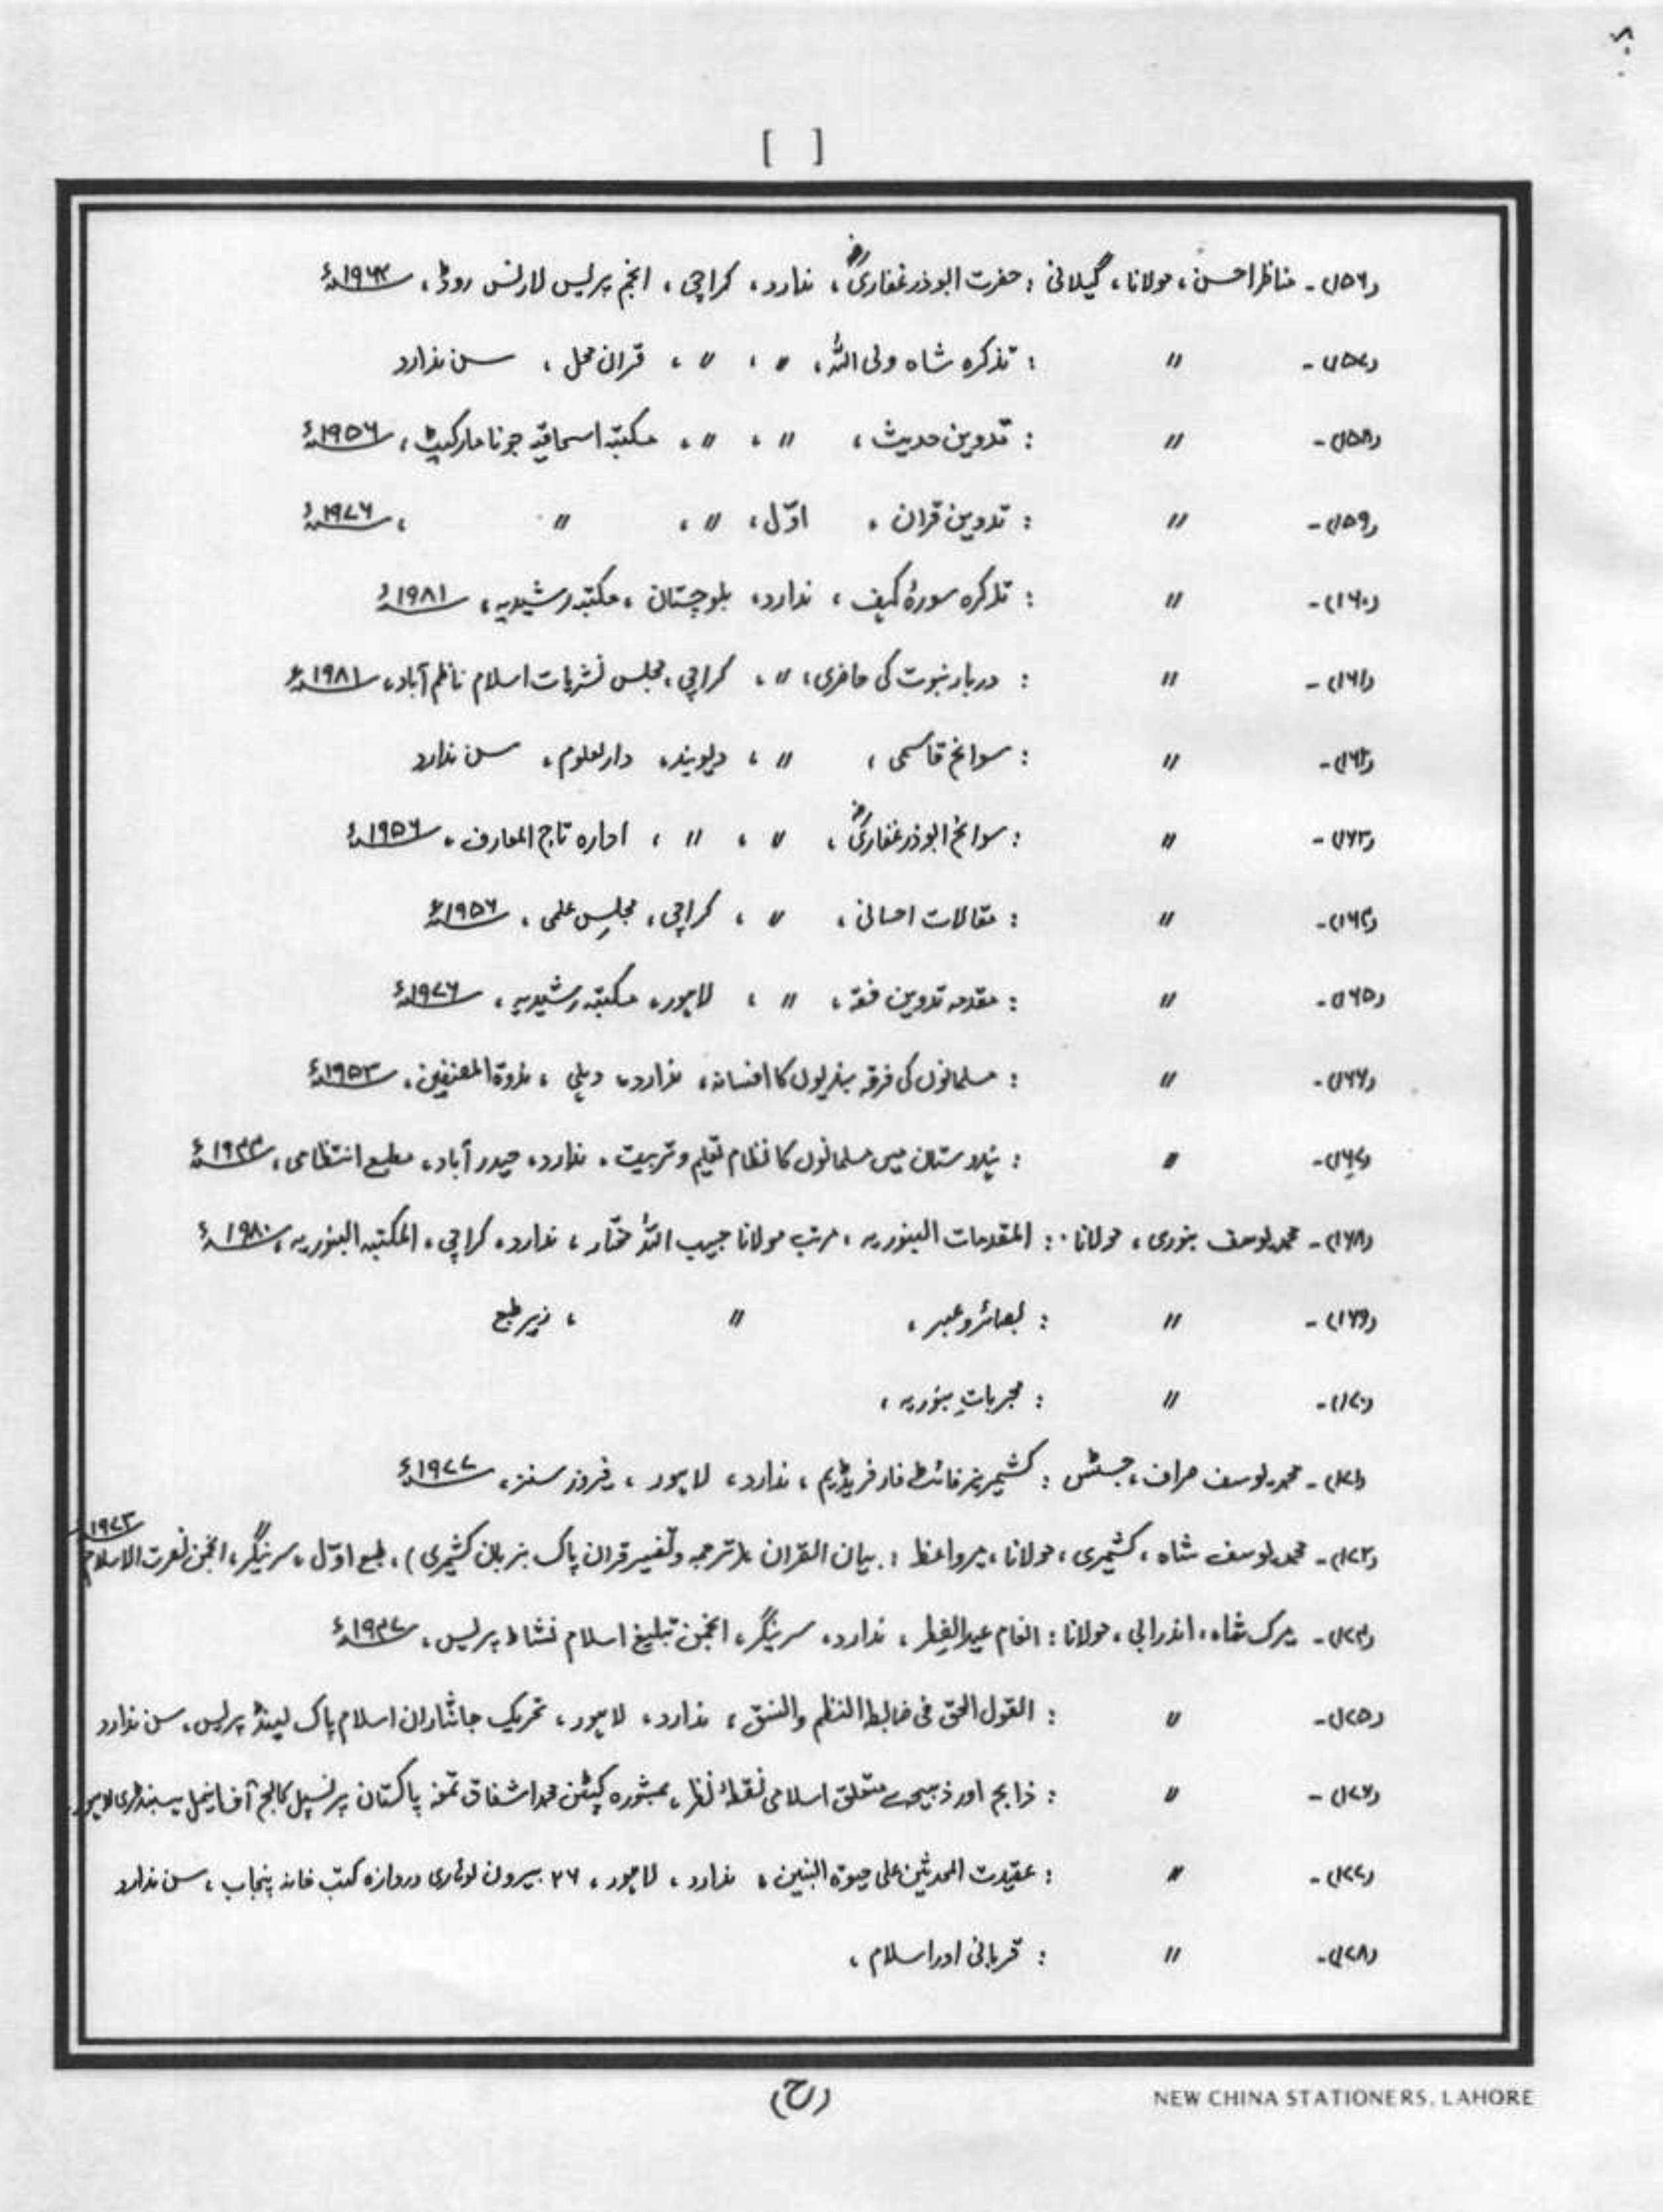 [ ]
(۱۵۶)۔ مناظر احسن، مولانا، گیلانی : حضرت ابوذر غفاریؓ، ندارد، کراچی، انجم پریس لارنس روڈ، ۱۹۶۴ء
(۱۵۷)۔ // : تذکرہ شاہ ولی اللہؒ، //، //، قران محل، سن ندارد
(۱۵۸)۔ // : تدوین حدیث، //، //، مکتبہ اسحاقیہ جونا مارکیٹ، ۱۹۵۶ء
(۱۵۹)۔ // : تدوین قران، اوّل، //، //، ۱۹۷۶ء
(۱۶۰)۔ // : تذکرہ سورۂ کہف، ندارد، بلوچستان، مکتبہ رشیدیہ، ۱۹۸۱ء
(۱۶۱)۔ // : دربار نبوت کی حاضری، //، کراچی، مجلس نشریات اسلام ناظم آباد، ۱۹۸۱ء
(۱۶۲)۔ // : سوانح قاسمی، //، دیوبند، دارلعلوم، سن ندارد
(۱۶۳)۔ // : سوانح ابوذر غفاریؓ، //، //، ادارہ تاج المعارف، ۱۹۵۶ء
(۱۶۴)۔ // : مقالات احسانی، //، کراچی، مجلسِ علمی، ۱۹۵۶ء
(۱۶۵)۔ // : مقدمہ تدوین فقہ، //، لاہور، مکتبہ رشیدیہ، ۱۹۷۶ء
(۱۶۶)۔ // : مسلمانوں کی فرقہ بندیوں کا افسانہ، ندارد، دہلی، ندوۃ المصنفین، ۱۹۵۳ء
(۱۶۷)۔ // : ہندوستان میں مسلمانوں کا نظام تعلیم و تربیت، ندارد، حیدر آباد، مطبع انتظامی، ۱۹۴۴ء
(۱۶۸)۔ محمد یوسف بنوری، مولانا : المقدمات البنوریہ، مرتب مولانا حبیب اللہ مختار، ندارد، کراچی، المکتبہ البنوریہ، ۱۹۸۰ء
(۱۶۹)۔ // : بصائر و عبر، //، زیر طبع
(۱۷۰)۔ // : مجرباتِ بنوریہ،
(۱۷۱)۔ محمد یوسف صراف، جسٹس : کشمیریز فائٹ فار فریڈیم، ندارد، لاہور، فیروز سنز، ۱۹۷۷ء
(۱۷۲)۔ محمد یوسف شاہ، کشمیری، مولانا، میرواعظ : بیان القران (ترجمہ و تفسیر قران پاک بزبان کشمیری)، طبع اوّل، سرینگر، انجمن نصرت الاسلام ۱۹۷۳
(۱۷۴)۔ میرک شاہ، اندرابی، مولانا : انعام عید الفطر، ندارد، سرینگر، انجمن تبلیغ اسلام نشاط پریس، ۱۹۴۷ء
(۱۷۵)۔ // : القول الحق فی ضابط النظم والنسق، ندارد، لاہور، تحریک جانثاران اسلام پاک لینڈ پریس، سن ندارد
(۱۷۶)۔ // : ذابح اور ذبیحہ سے متعلق اسلامی نقطۂ نظر، بمشورہ کیپٹن محمد اشفاق تمغہ پاکستان پرنسپل کالج آف اینمل ہسبنڈری لاہور
(۱۷۷)۔ // : عقیدت المحدثین علی حیوۃ النبین، ندارد، لاہور، ۲۷ بیرون لوہاری دروازہ کتب خانہ پنجاب، سن ندارد
(۱۷۸)۔ // : قربانی اور اسلام،
(ح)
NEW CHINA STATIONERS, LAHORE